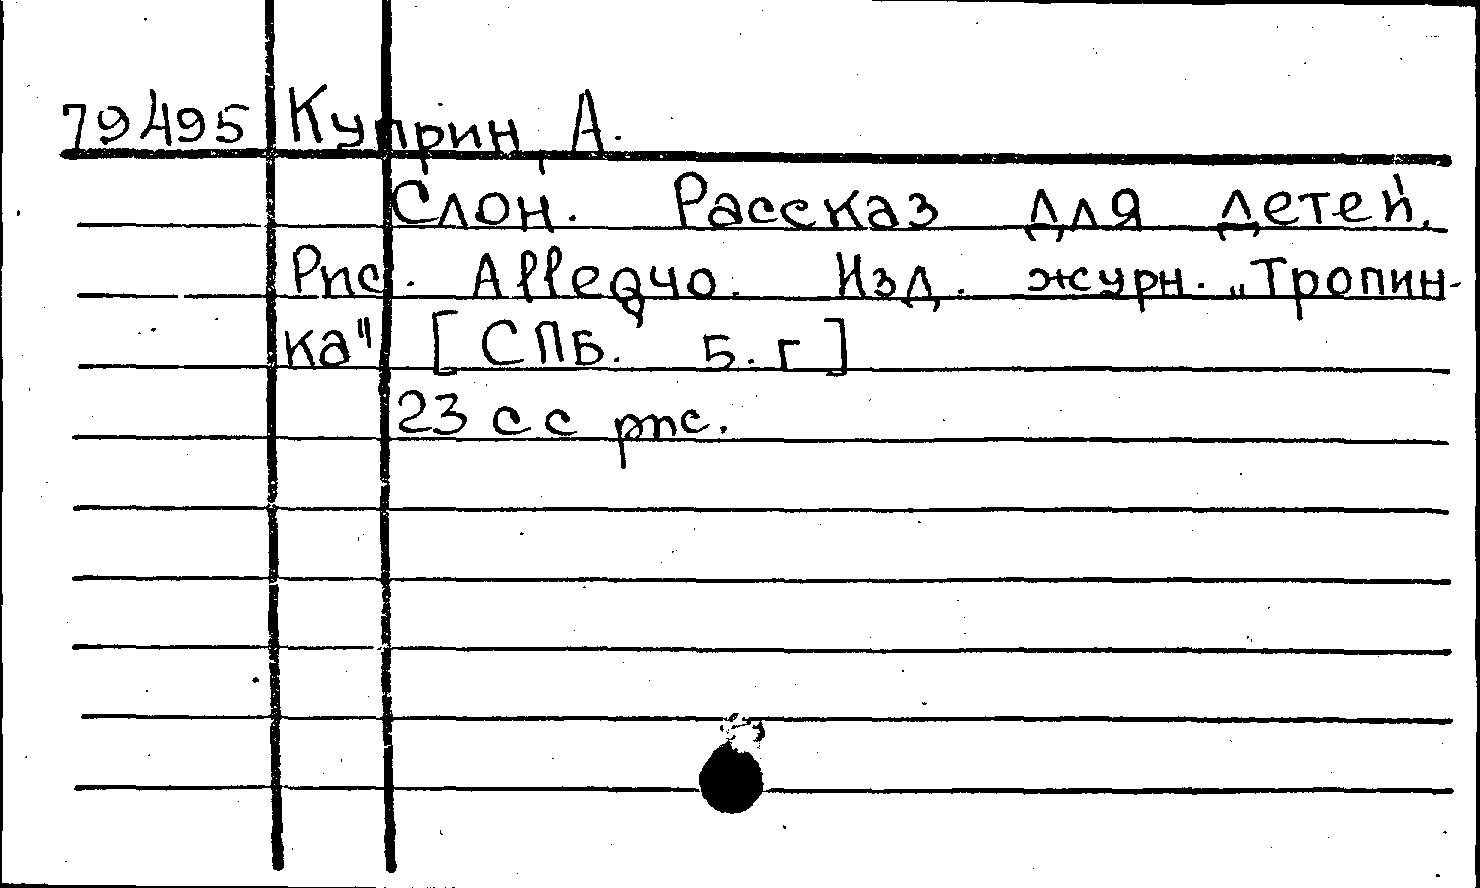 79495 Куприн, А.
Слон. Рассказ для детей.
Рис. Allegчo. Изд. журн. „Тропин-
ка" [СПБ. Б. г]
23 с с рис.